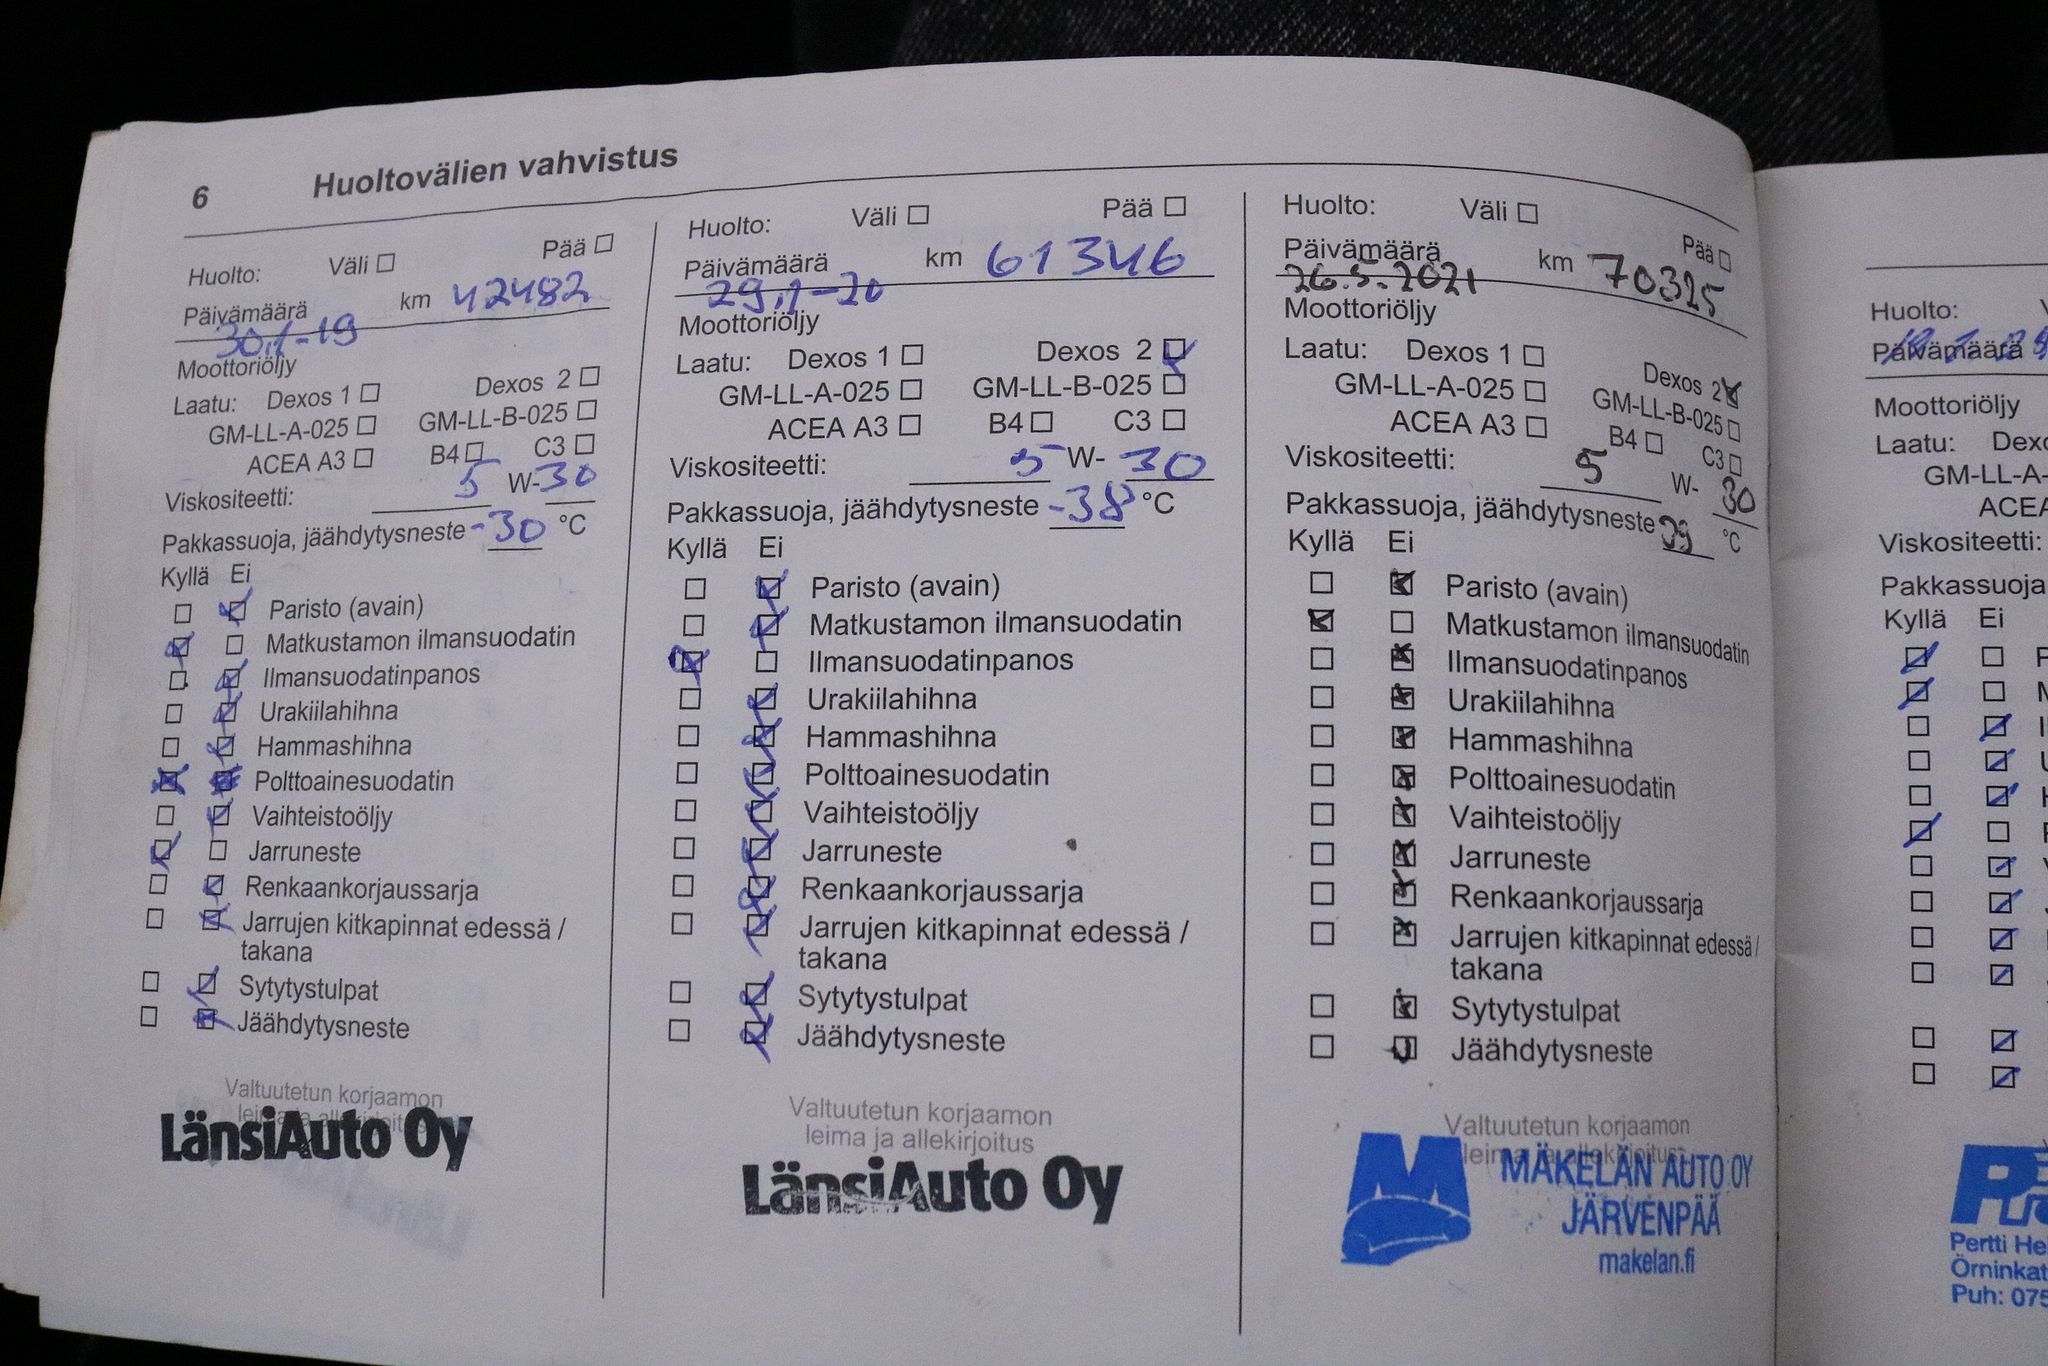 6 Huoltovälien vahvistus
Huolto: Väli Pää
Päivämäärä km 42482
30.1-19
Moottoriöljy
Laatu: Dexos 1 Dexos 2
GM-LL-A-025 GM-LL-B-025
ACEA A3 B4 C3
Viskositeetti: 5 W-30
Pakkassuoja, jäähdytysneste -30 °C
Kyllä Ei
Paristo (avain)
Matkustamon ilmansuodatin
Ilmansuodatinpanos
Urakiilahihna
Hammashihna
Polttoainesuodatin
Vaihteistoöljy
Jarruneste
Renkaankorjaussarja
Jarrujen kitkapinnat edessä /
takana
Sytytystulpat
Jäähdytysneste
Valtuutetun korjaamon
LänsiAuto Oy
Huolto: Väli Pää
Päivämäärä km 61346
29.1-20
Moottoriöljy
Laatu: Dexos 1 Dexos 2
GM-LL-A-025 GM-LL-B-025
ACEA A3 B4 C3
Viskositeetti: 5 W- 30
Pakkassuoja, jäähdytysneste -38 °C
Kyllä Ei
Paristo (avain)
Matkustamon ilmansuodatin
Ilmansuodatinpanos
Urakiilahihna
Hammashihna
Polttoainesuodatin
Vaihteistoöljy
Jarruneste
Renkaankorjaussarja
Jarrujen kitkapinnat edessä /
takana
Sytytystulpat
Jäähdytysneste
Valtuutetun korjaamon
leima ja allekirjoitus
LänsiAuto Oy
Huolto: Väli Pää
Päivämäärä km 70325
26.5.2021
Moottoriöljy
Laatu: Dexos 1 Dexos 2
GM-LL-A-025 GM-LL-B-025
ACEA A3 B4 C3
Viskositeetti: 5 W- 30
Pakkassuoja, jäähdytysneste °C
Kyllä Ei
Paristo (avain)
Matkustamon ilmansuodatin
Ilmansuodatinpanos
Urakiilahihna
Hammashihna
Polttoainesuodatin
Vaihteistoöljy
Jarruneste
Renkaankorjaussarja
Jarrujen kitkapinnat edessä /
takana
Sytytystulpat
Jäähdytysneste
Valtuutetun korjaamon
leima ja allekirjoitus
MÄKELÄN AUTO OY
JÄRVENPÄÄ
makelan.fi
Huolto:
Päivämäärä
Moottoriöljy
Laatu: Dexo
GM-LL-A-
ACEA
Viskositeetti:
Pakkassuoja
Kyllä Ei
Pertti He
Örninkat
Puh: 075